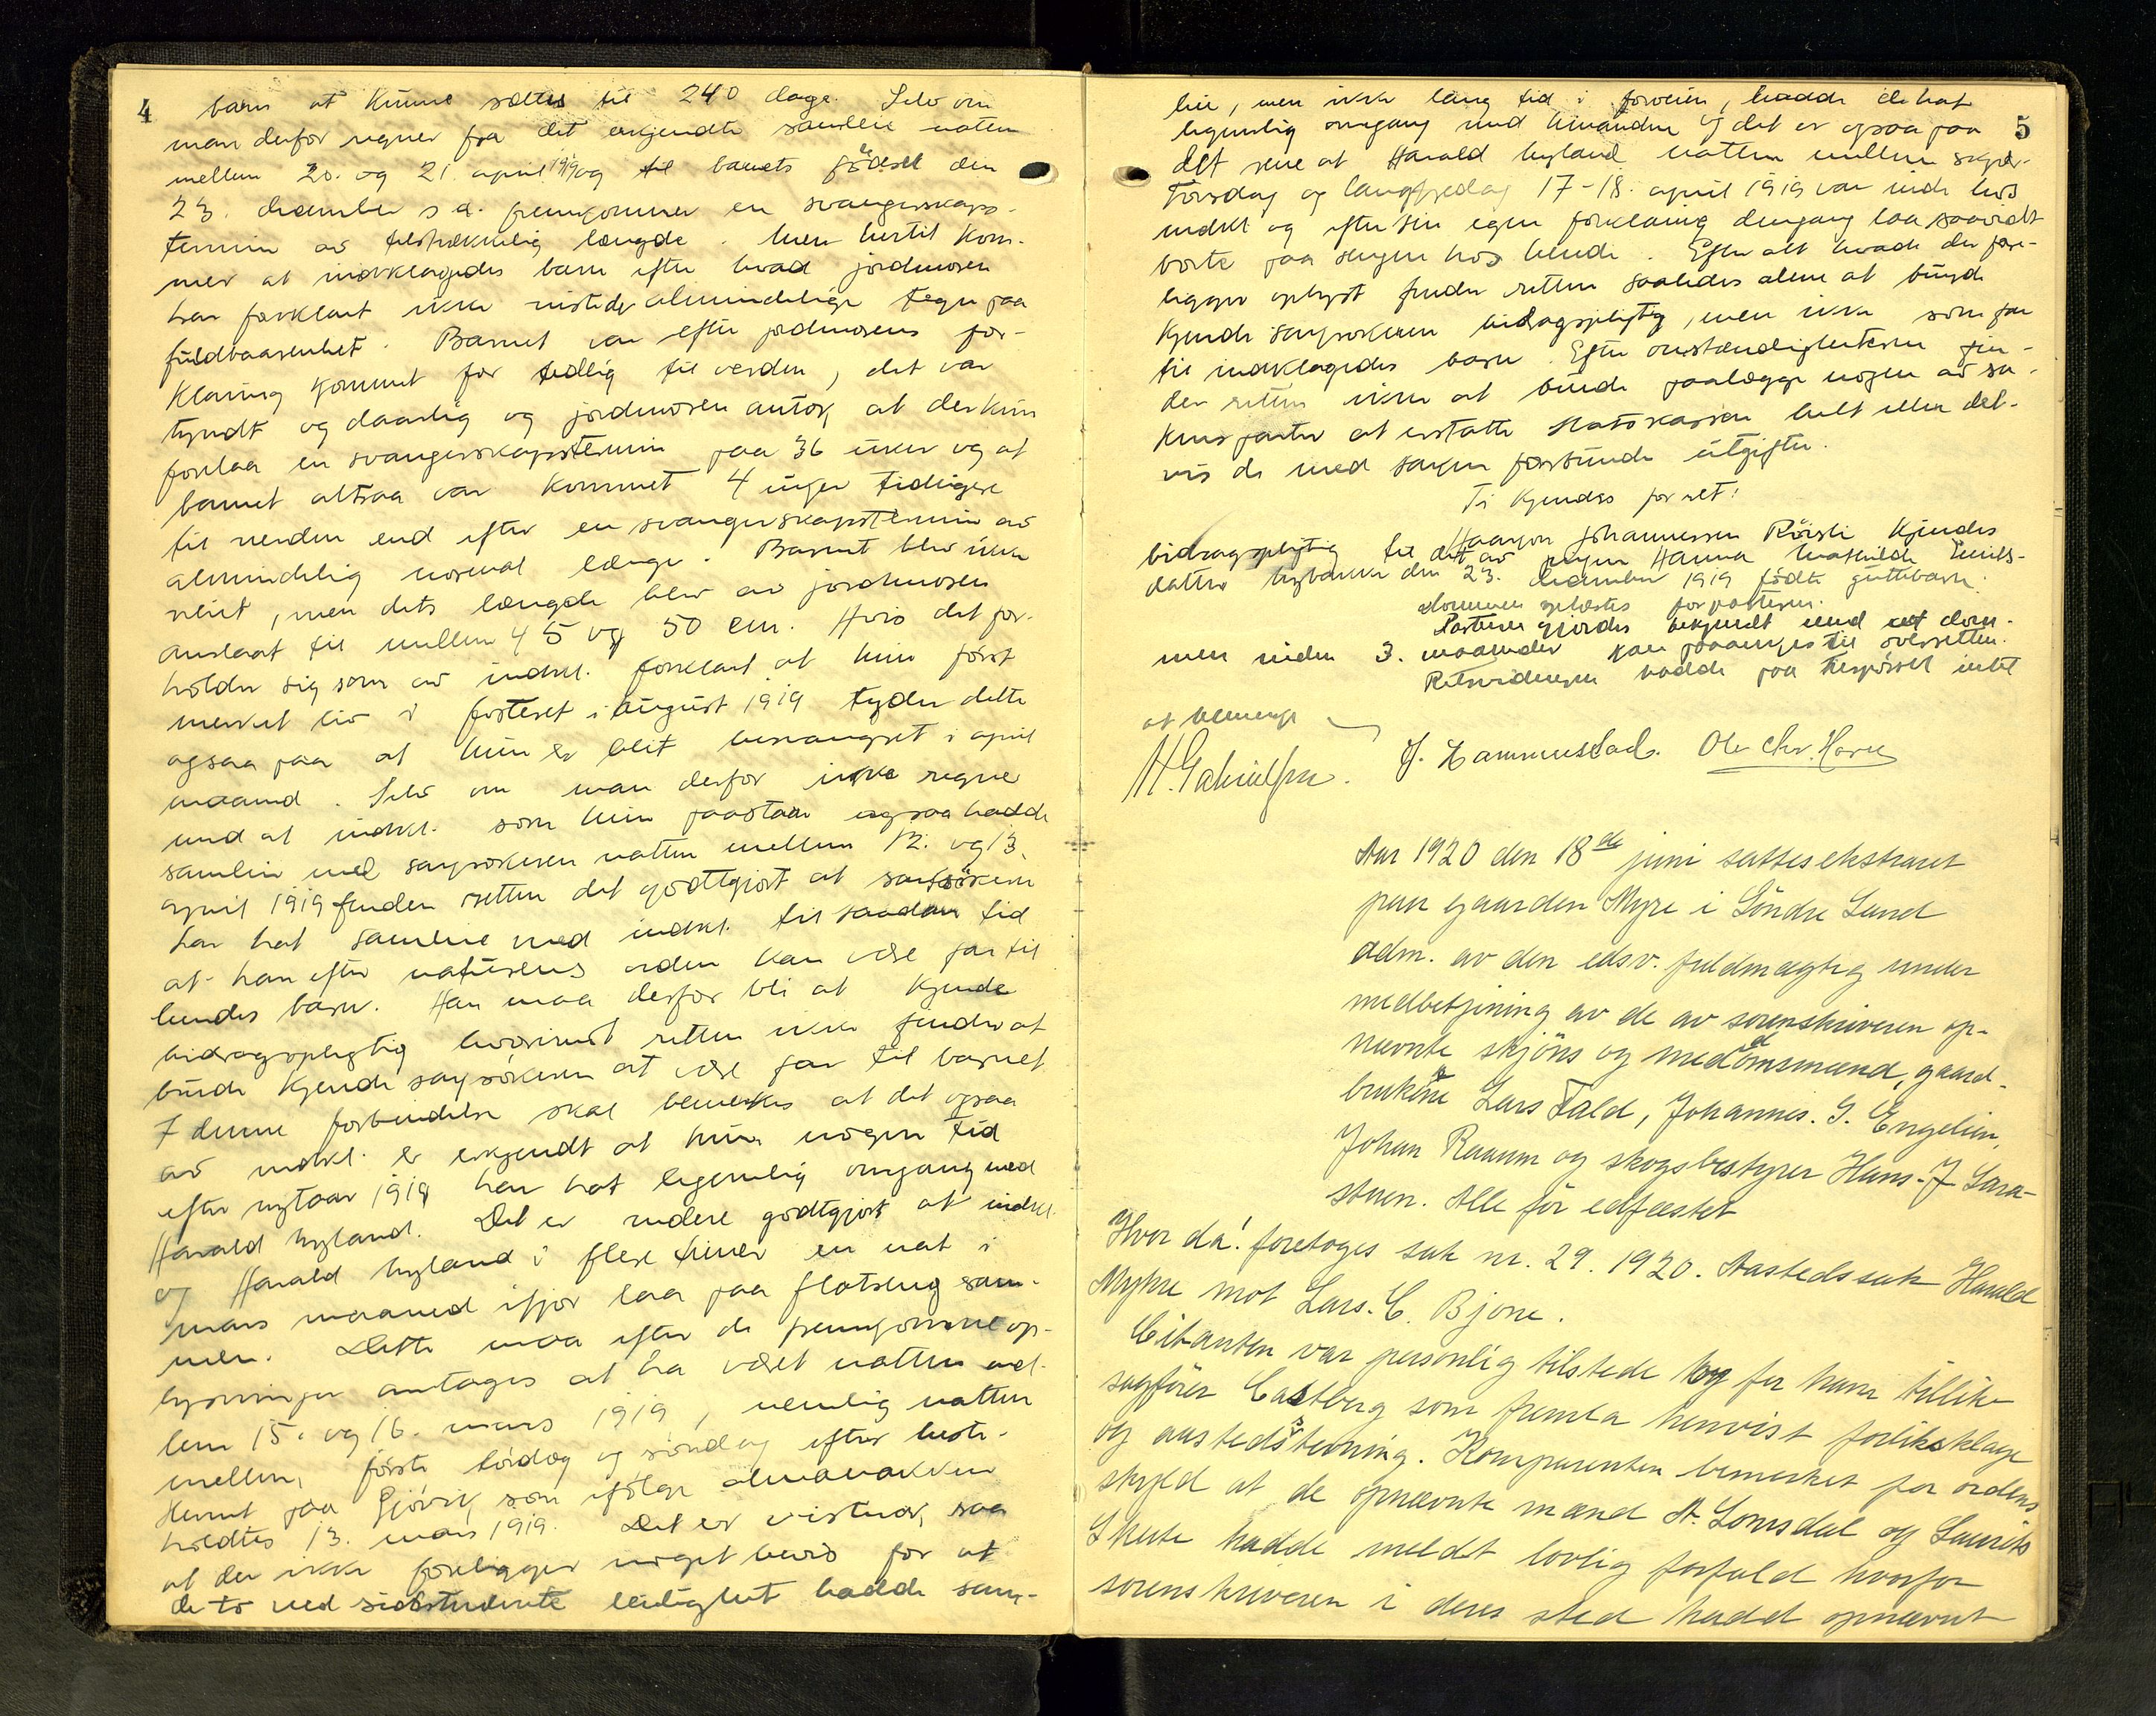 4
barn at kunne sættes til 240 dage. Selv om
man derfor regner fra det erkjendte samleie natten
mellem 20. og 21. april 1919 og til barnets fødsel den
23. december s.a. fremkommer en svangerskaps-
termin av tilstrækkelig længde. Men hertil kom-
mer at indklagedes barn efter hvad jordmoren
har forklart ikke viste de almindelige tegn paa
fuldbaarenhet. Barnet var efter jordmorens for-
klaring kommet for tidlig til verden, det var
tyndt og daarlig og jordmoren antok at der kun
forelaa en svangerskapstermin paa 36 uker og at
barnet altsaa var kommet 4 uger tidligere
til verden end efter en svangerskapstermin av
almindelig normal længe. Barnet blev ikke
veiet, men dets længde blev av jordmoren
anslaat til mellem 45 og 50 cm. Hvis det for-
holder sig som av indkl. forklart at hun først
merket liv i fosteret i august 1919 tyder dette
ogsaa paa at hun er blit besvangret i april
maaned. Selv om man derfor ikke regner
med at indkl. som hun paastaar ogsaa hadde
samleie med saksøkeren natten mellem 12. og 13.
april 1919 finder retten det godtgjort at saksøkeren
har hat samleie med indkl. til saadan tid
at han efter naturens orden kan være far til
hendes barn. Han maa derfor bli at kjende
bidragspligtig hvorimot retten ikke finder at
burde kjende saksøkeren at være far til barnet.
I denne forbindelse skal bemerkes at det ogsaa
av indkl. er erkjendt at hun nogen tid
efter nytaar 1919 har hat legemlig omgang med
Harald Nyland. Det er videre godtgjort at indkl.
og Harald Nyland i flere timer en nat i
mars maaned ifjor laa paa flatseng sam-
men. Dette maa efter de fremkomne op-
lysninger antages at ha været natten mel-
lem 15. og 16. mars 1919, nemlig natten
mellem første lørdag og søndag efter heste-
kemt paa Gjøvik som ifølge almanakken
holdtes 13. mars 1919. Det er vistnok saa
at der ikke foreligger noget bevis for at
de to ved sidstnævnte leilighet hadde sam-
5
leie, men ikke lang tid i forveien, hadde de hat
legemlig omgang med hinanden og det er ogsaa paa
det rene at Harald Nyland natten mellem skjær-
torsdag og langfredag 17-18. april 1919 var inde hos
indkl og efter sin egen forklaring dengang laa saavidt
borte paa sengen hos hende. Efter alt hvad der fore-
ligger oplyst finder retten saaledes alene at burde
kjende saksøkeren bidragspligtig, men ikke som far
til indklagedes barn. Efter omstændigheterne fin-
der retten ikke at burde paalægge nogen av sa-
kens parter at erstatte statskassen helt eller del-
vis de med saken forbundne utgifter.
Ti kjendes for ret:
Haakon Johannessen Røisli kjendes
bidragspligtig til det av piken Hanna Mathilde Emils-
datter Nybakke den 23. december 1919 født guttebarn.
Dommen oplæstes for parterne.
Parterne gjordes bekjendt med at dom-
men inden 3. maaneder kan paaankes til overretten.
Retsvidnene hadde paa tilspørsel intet
at bemerke
H. Gabrielsen. J. Hammerstad. Ole Chr. Hove
Aar 1920 den 18de juni sattes ekstraret
paa gaarden Myre i Søndre Land
adm. av den edsv. fuldmægtig under
medbetjening av de av sorenskriveren op-
nævnte skjøns og meddomsmænd, gaard-
brukerne Lars Fald, Johannes. G. Engelien,
Johan Raaum og skogsbestyrer Hans. J Sara-
stuen. Alle før edfæstet
Hvor da! foretoges sak nr. 29. 1920. Aastedssak Harald
Myhre mot Lars. C. Bjone.
Citanten var personlig tilstede og for ham tillike
sagfører Castberg som fremla henvist forliksklage
og aastedsstevning. Komparenten bemerket for ordens
skyld at de opnævnte mænd A. Lomsdal og Laurits
Skute hadde meldt lovlig forfald hvorfor
sorenskriveren i deres sted hadd opnævnt